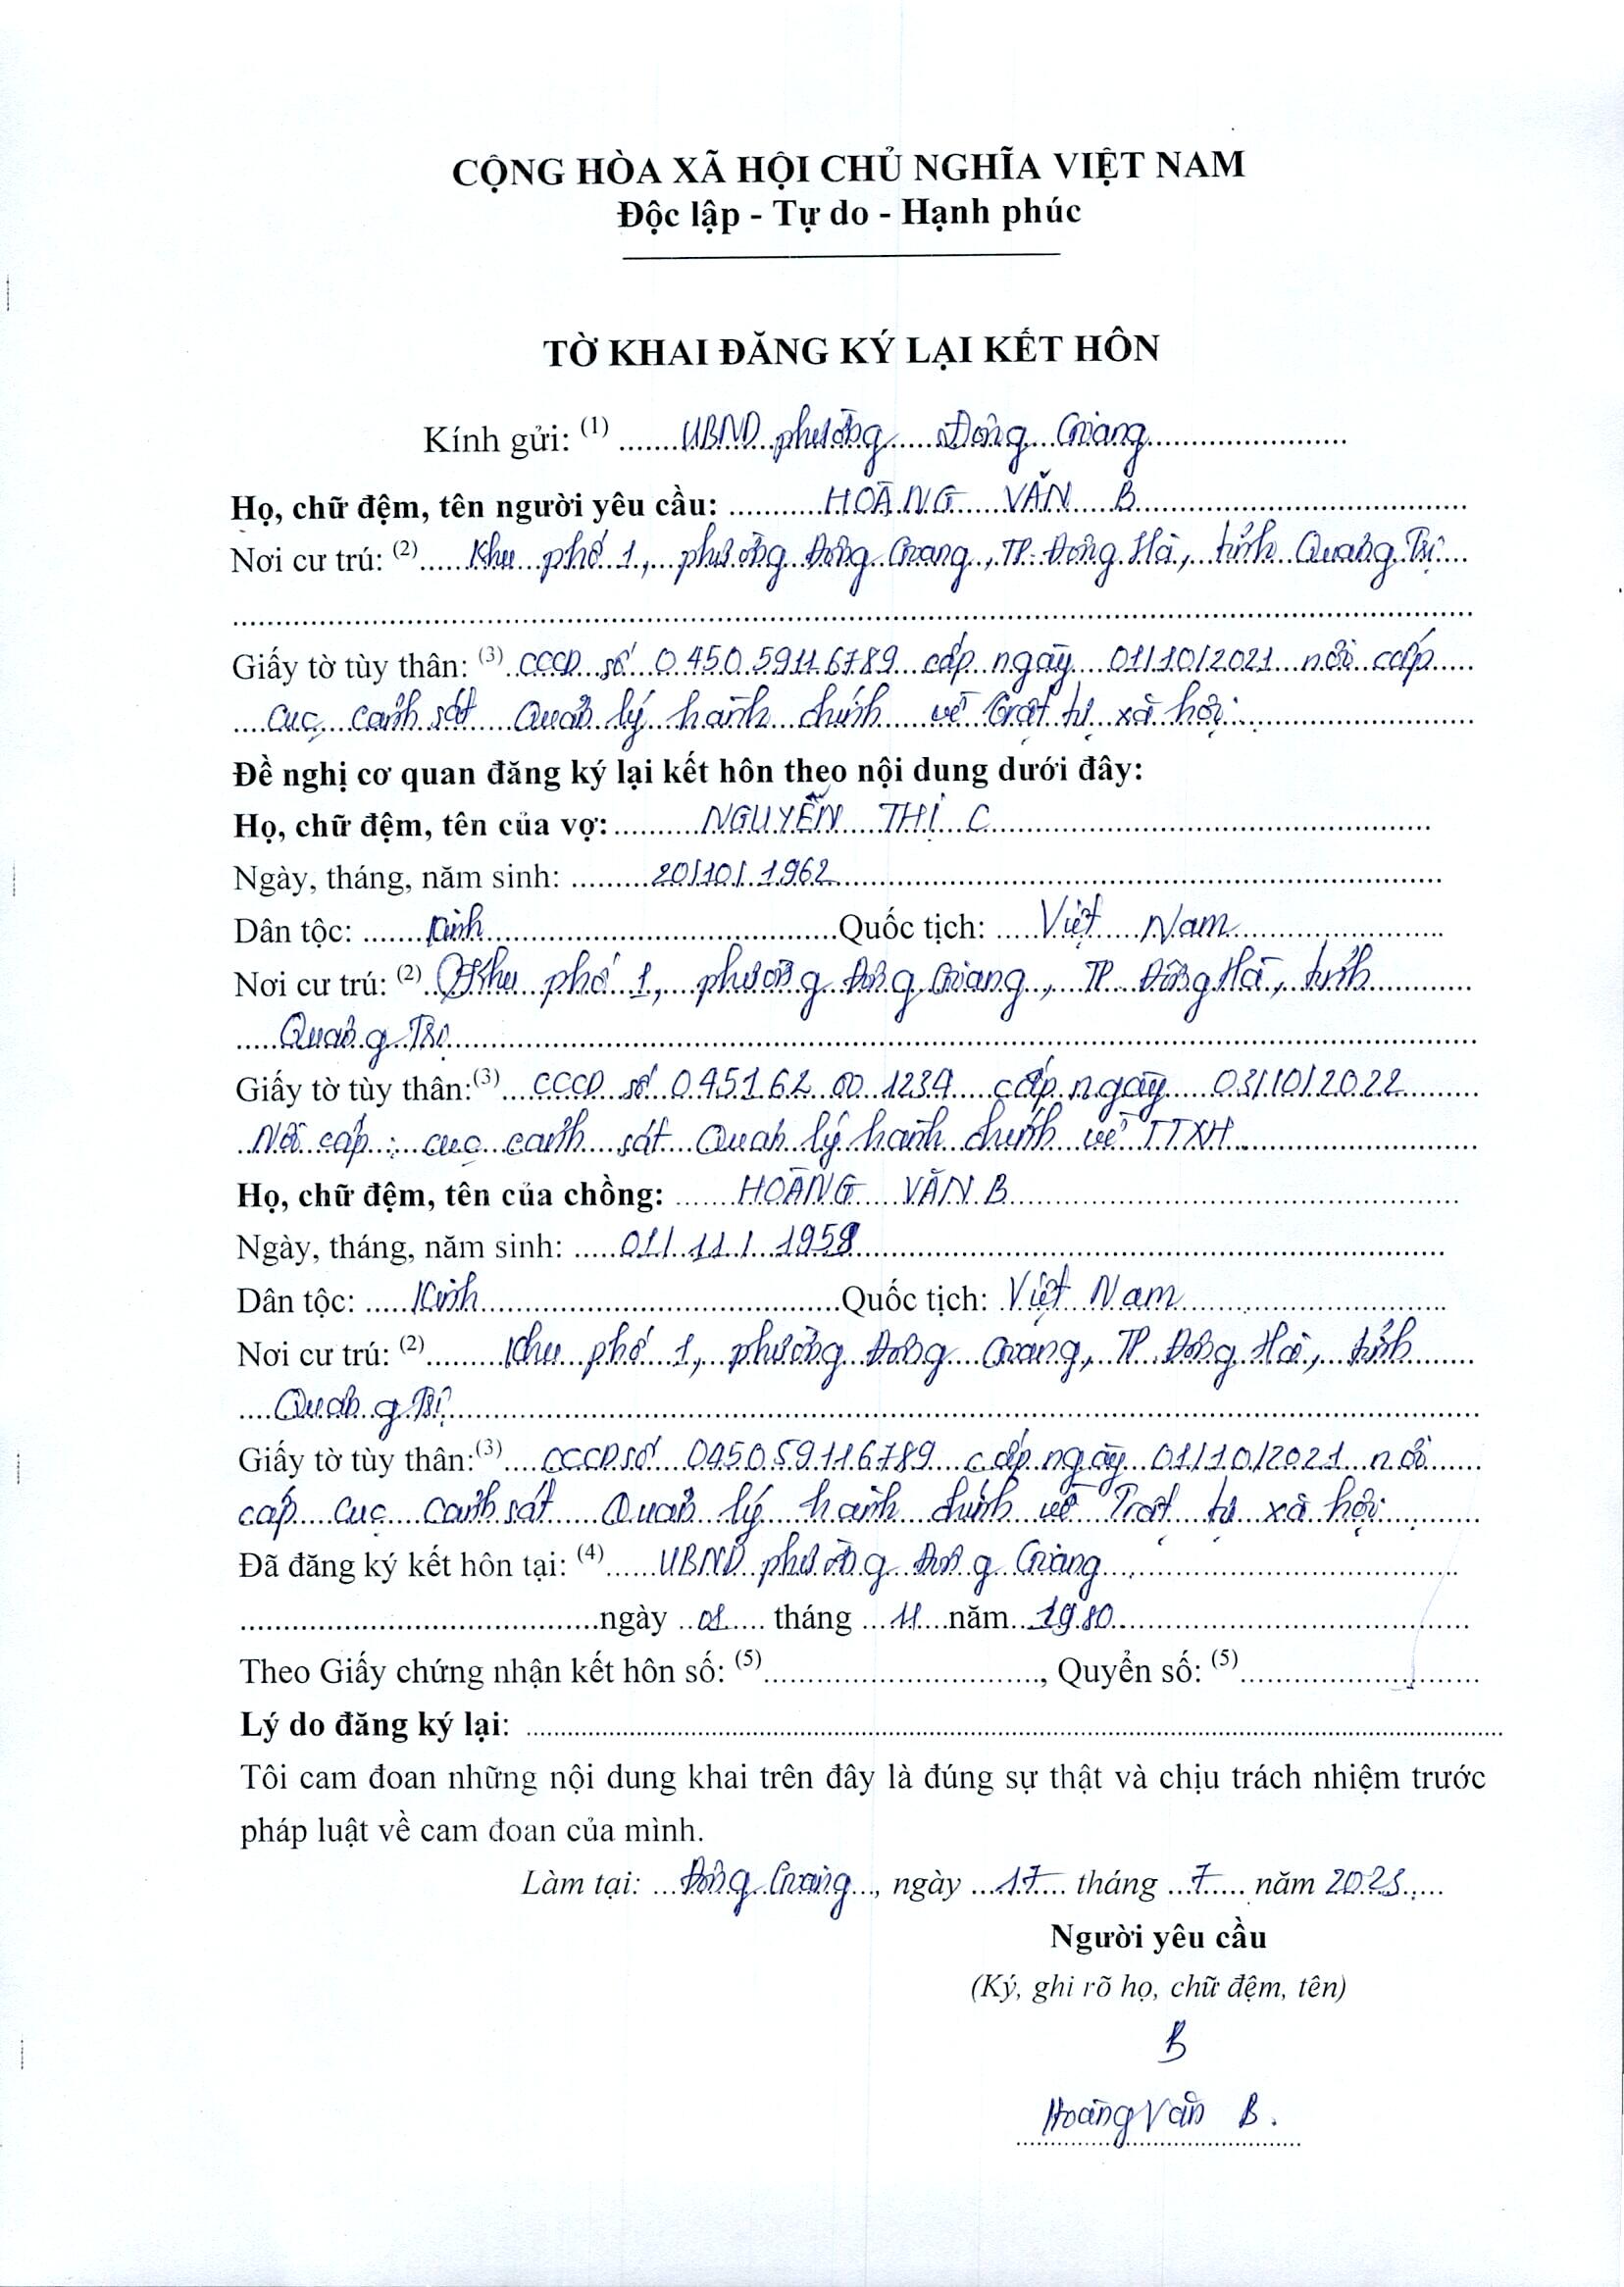 CỘNG HÒA XÃ HỘI CHỦ NGHĨA VIỆT NAM
Độc lập - Tự do - Hạnh phúc
TỜ KHAI ĐĂNG KÝ LẠI KẾT HÔN
Kính gửi: (1) UBND phường Đông Giang
Họ, chữ đệm, tên người yêu cầu: HOÀNG VĂN B
Nơi cư trú: (2) Khu phố 1, phường Đông Giang, TP. Đông Hà, tỉnh Quảng Trị
Giấy tờ tùy thân: (3) CCCD số 045059116789 cấp ngày 01/10/2021 nơi cấp
cục cảnh sát Quản lý hành chính về trật tự xã hội.
Đề nghị cơ quan đăng ký lại kết hôn theo nội dung dưới đây:
Họ, chữ đệm, tên của vợ: NGUYỄN THỊ C
Ngày, tháng, năm sinh: 20/10/1962
Dân tộc: Kinh Quốc tịch: Việt Nam
Nơi cư trú: (2) Khu phố 1, phường Đông Giang, TP. Đông Hà, tỉnh
Quảng Trị
Giấy tờ tùy thân:(3) CCCD số 045162 00 1234 cấp ngày 03/10/2022
Nơi cấp : cục cảnh sát Quản lý hành chính về TTXH
Họ, chữ đệm, tên của chồng: HOÀNG VĂN B
Ngày, tháng, năm sinh: 01/11/1959
Dân tộc: Kinh Quốc tịch: Việt Nam
Nơi cư trú: (2) Khu phố 1, phường Đông Giang, TP Đông Hà, tỉnh
Quảng Trị
Giấy tờ tùy thân:(3) CCCD số 045059116789 cấp ngày 01/10/2021 nơi
cấp cục cảnh sát Quản lý hành chính về Trật tự xã hội.
Đã đăng ký kết hôn tại: (4) UBND phường Đông Giang
ngày 01 tháng 11 năm 1980
Theo Giấy chứng nhận kết hôn số: (5), Quyển số: (5)
Lý do đăng ký lại:
Tôi cam đoan những nội dung khai trên đây là đúng sự thật và chịu trách nhiệm trước
pháp luật về cam đoan của mình.
Làm tại: Đông Giang, ngày 17 tháng 7 năm 2023
Người yêu cầu
(Ký, ghi rõ họ, chữ đệm, tên)
B
Hoàng Văn B.